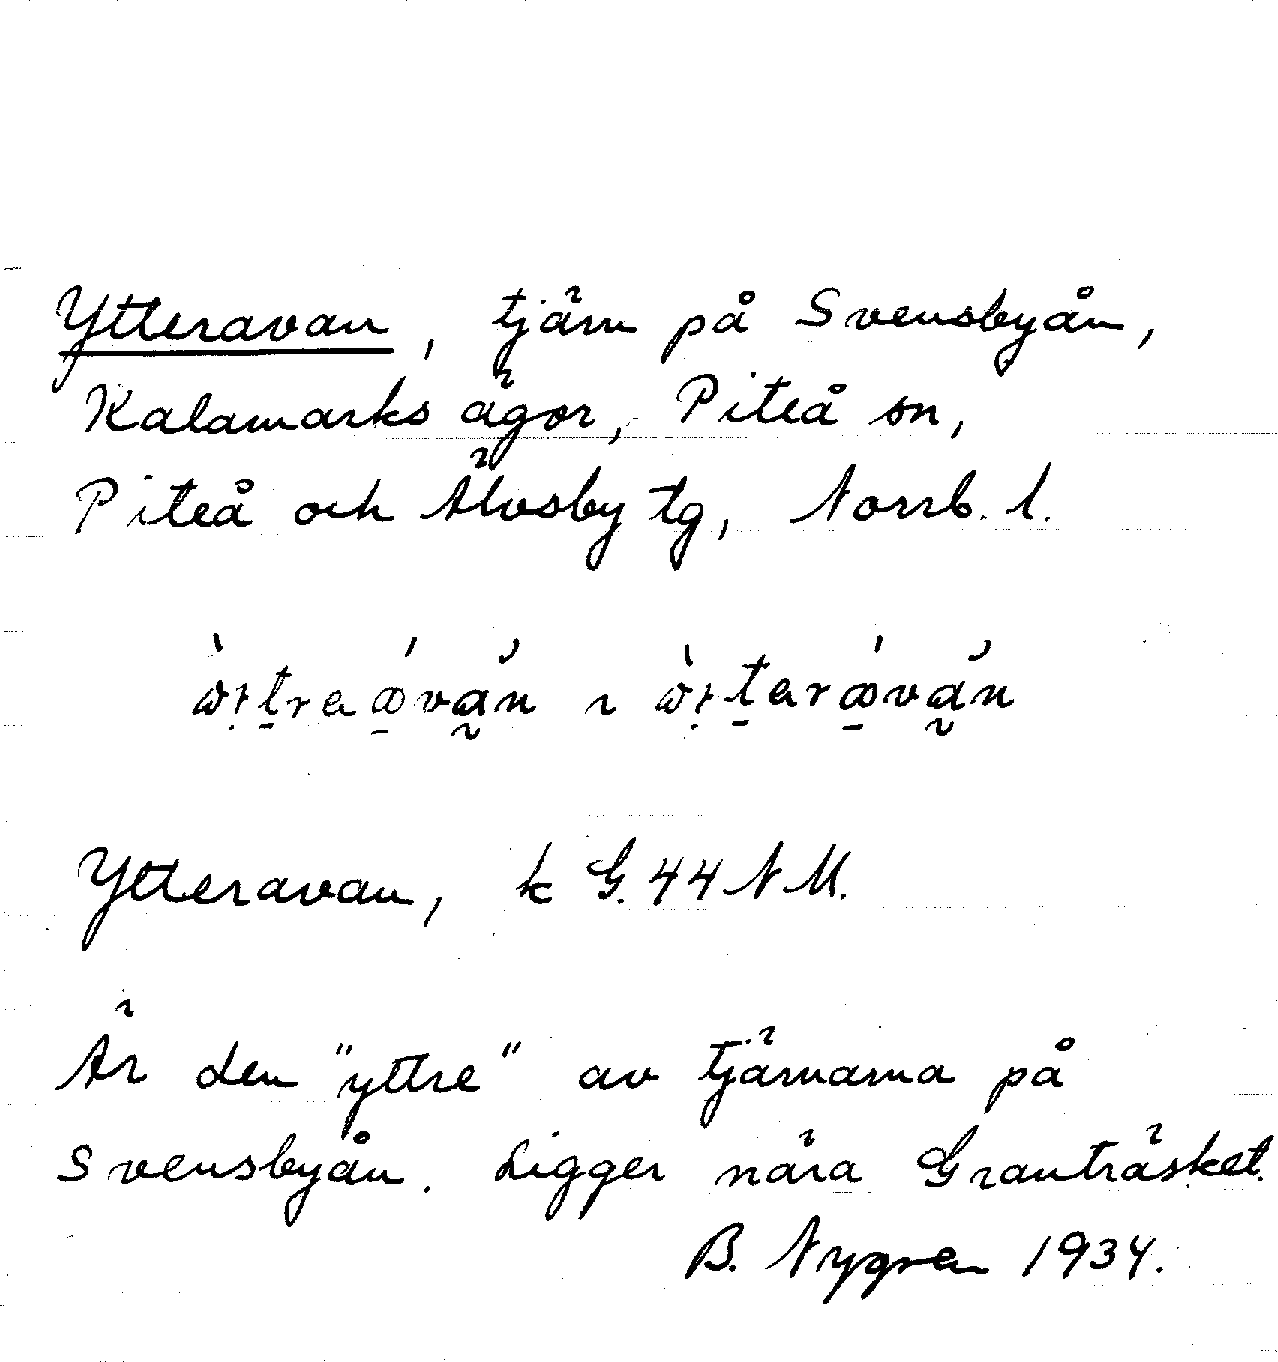 Ytteravan, tjärn på Svensbyån,
Kalamarks ägor, Piteå sn,
Piteå och Älvsby tg, Norrb. l.
Ytteravan, k G. 44 N M.
Är den "yttre" av tjärnarna på
Svensbyån. Ligger nära Granträsket.
B. Nygren 1934.